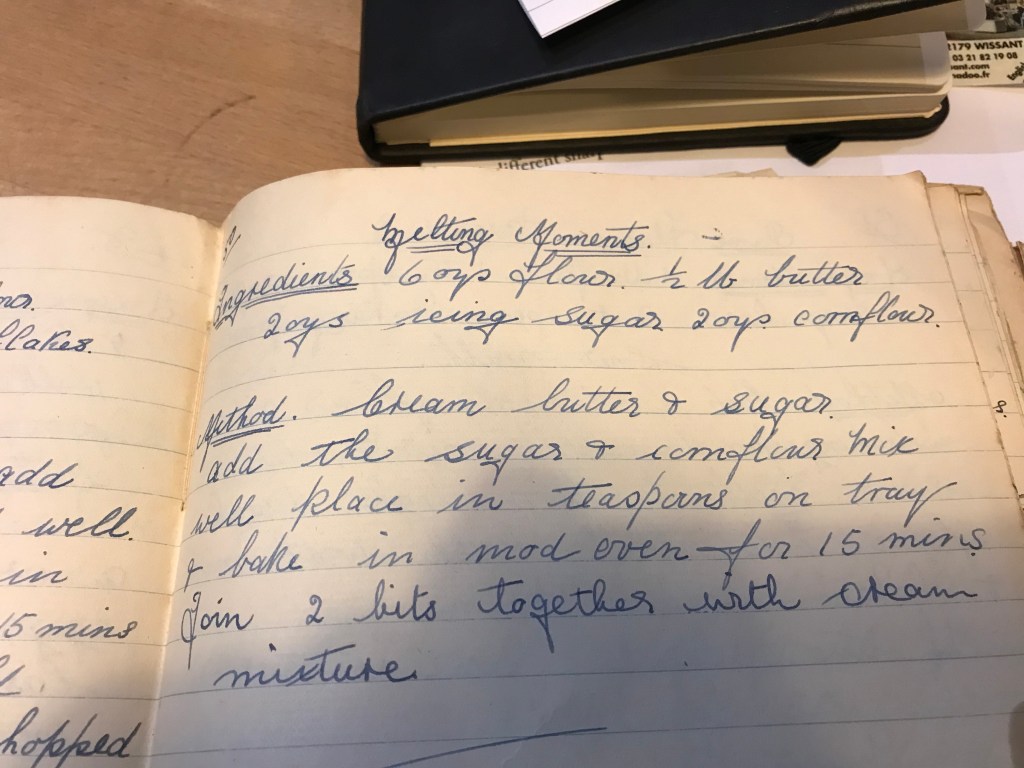 2179 WISSANT
03 21 82 19 08
sant.com
nadoo.fr
different sharp
Melting Moments.
Ingredients 6 ozs flour. ½ lb butter
2ozs icing sugar 2ozs cornflour.
Method. Cream butter & sugar.
add the sugar & cornflour mix
well place in teaspoons on tray
& bake in mod oven for 15 mins
Join 2 bits together with cream
mixture.
flakes.
add
well.
in
15 mins
hopped